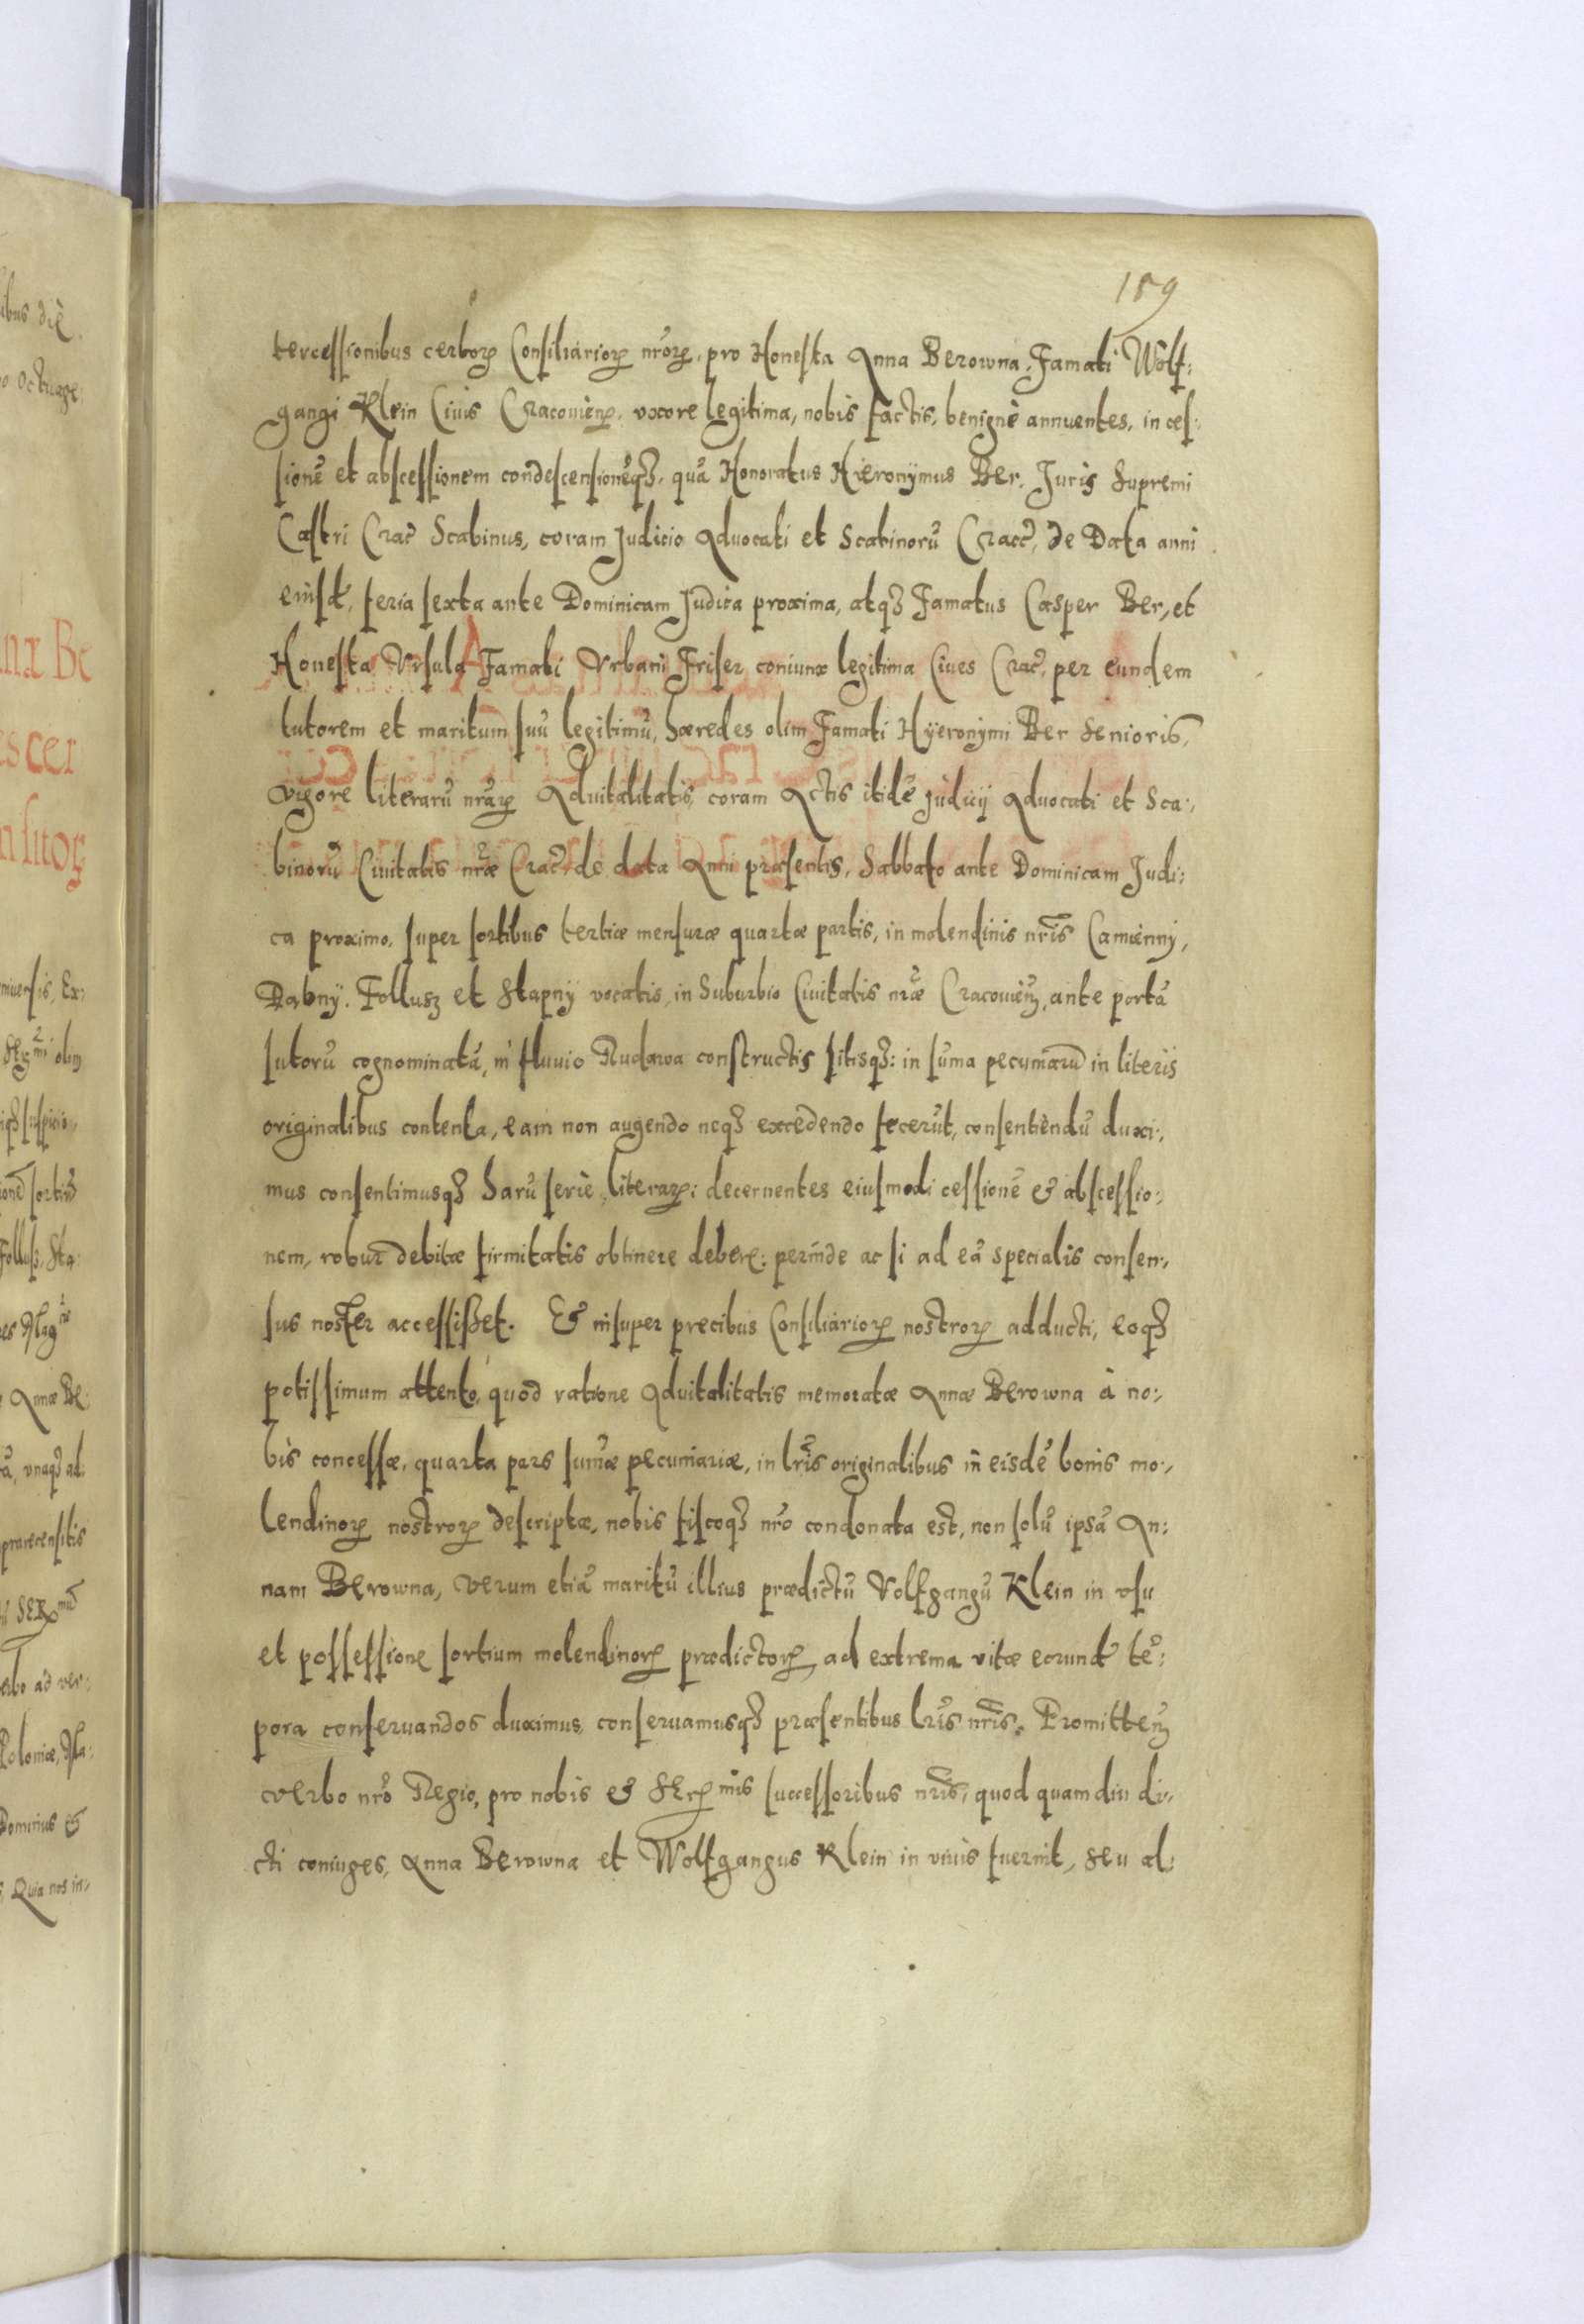 189
tercessionibus certorꝝ Consiliariorꝝ nrorꝝ, pro Honesta Anna Berowna, Famati Wolf:
gangi Klein Ciuis Cracovieñ, vxore legitima, nobis factis, benignè annuentes, in ces:
sionẽ et abscessionem condescensionẽqȝ, quã Honoratus Hieronymus Ber, Juris Supremi
Castri Crac̃ Scabinus, coram Judicio Aduocati et Scabinorũ Cracc̃, de Data anni
eiusd̃, feria sexta ante Dominicam Judica proxima, atqȝ Famatus Casper Ber, et
Honesta Vrsula Famati Vrbani Friser coniunx legitima Ciues Crac̃, per eundem
tutorem et maritum suũ legitimũ, hæredes olim Famati Hÿeronymi Ber Senioris,
Vigore literarũ nrarꝝ Aduitalitatis, coram Actis itidẽ Judicij Aduocati et Sca:
binorũ Ciuitatis nræ Crac̃ de data Anni præsentis, Sabbato ante Dominicam Judi:
ca proximo, super sortibus tertiæ mensuræ quartæ partis, in molendinis nr̃is Camienny,
Dabnÿ, Follusz et Stapnÿ vocatis, in Suburbio Ciuitatis nræ Cracovieñ, ante portã
sutorũ cognominatã, in fluuio Rudawa constructis sitisqȝ: in sum̃a pecuniarũ in literis
originalibus contenta, eam non augendo neqȝ excedendo fecerũt, consentiendũ duxi:
mus consentimusqȝ harũ serie literarꝝ: decernentes eiusmodi cessionẽ & abscessio:
nem, robur debitæ firmitatis obtinere debere: perinde ac si ad eã specialis consen:
sus noster accessisset. Et insuper precibus Consiliariorꝝ nostrorꝝ adducti, eoqȝ
potissimum attento, quod ratione Aduitalitatis memoratæ Annæ Berowna à no:
bis concessæ, quarta pars sum̃æ pecuniariæ, in lr̃is originalibus in eisdẽ bonis mo:
lendinorꝝ nostrorꝝ descriptæ, nobis fiscoqȝ nr̃o condonata est, non solũ ipsã An:
nam Berowna, verum etiã maritũ illius prædictũ Volfgangũ Klein in vsu
et possessione sortium molendinorꝝ prædictorꝝ, ad extrema vitæ eorund̃ tẽ:
pora conseruandos duximus, conseruamusqȝ præsentibus lr̃is nr̃is. Promitteñ
verbo nr̃o Regio, pro nobis & Serꝝ mis successoribus nr̃is, quod quamdiu di:
cti coniuges, Anna Berowna et Wolfgangus Klein in viuis fuerint, seu al: